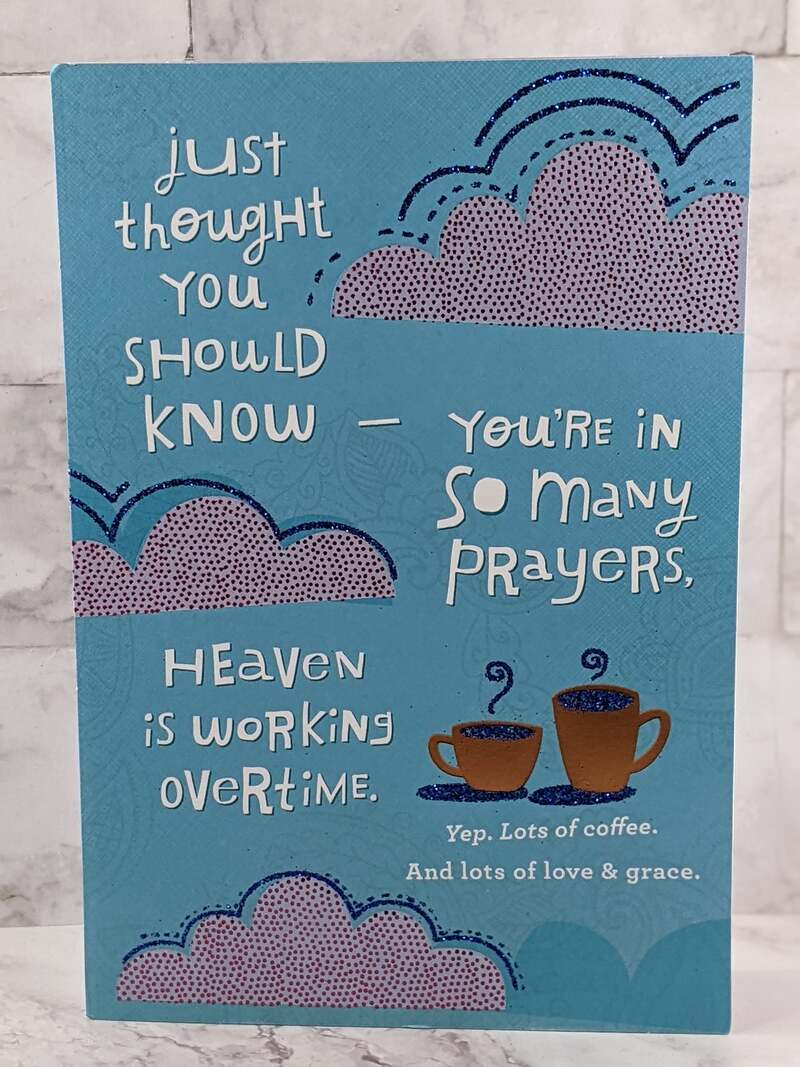 just
thought
you
should
know —
you're in
so many
prayers,
Heaven
is working
overtime.
Yep. Lots of coffee.
And lots of love & grace.